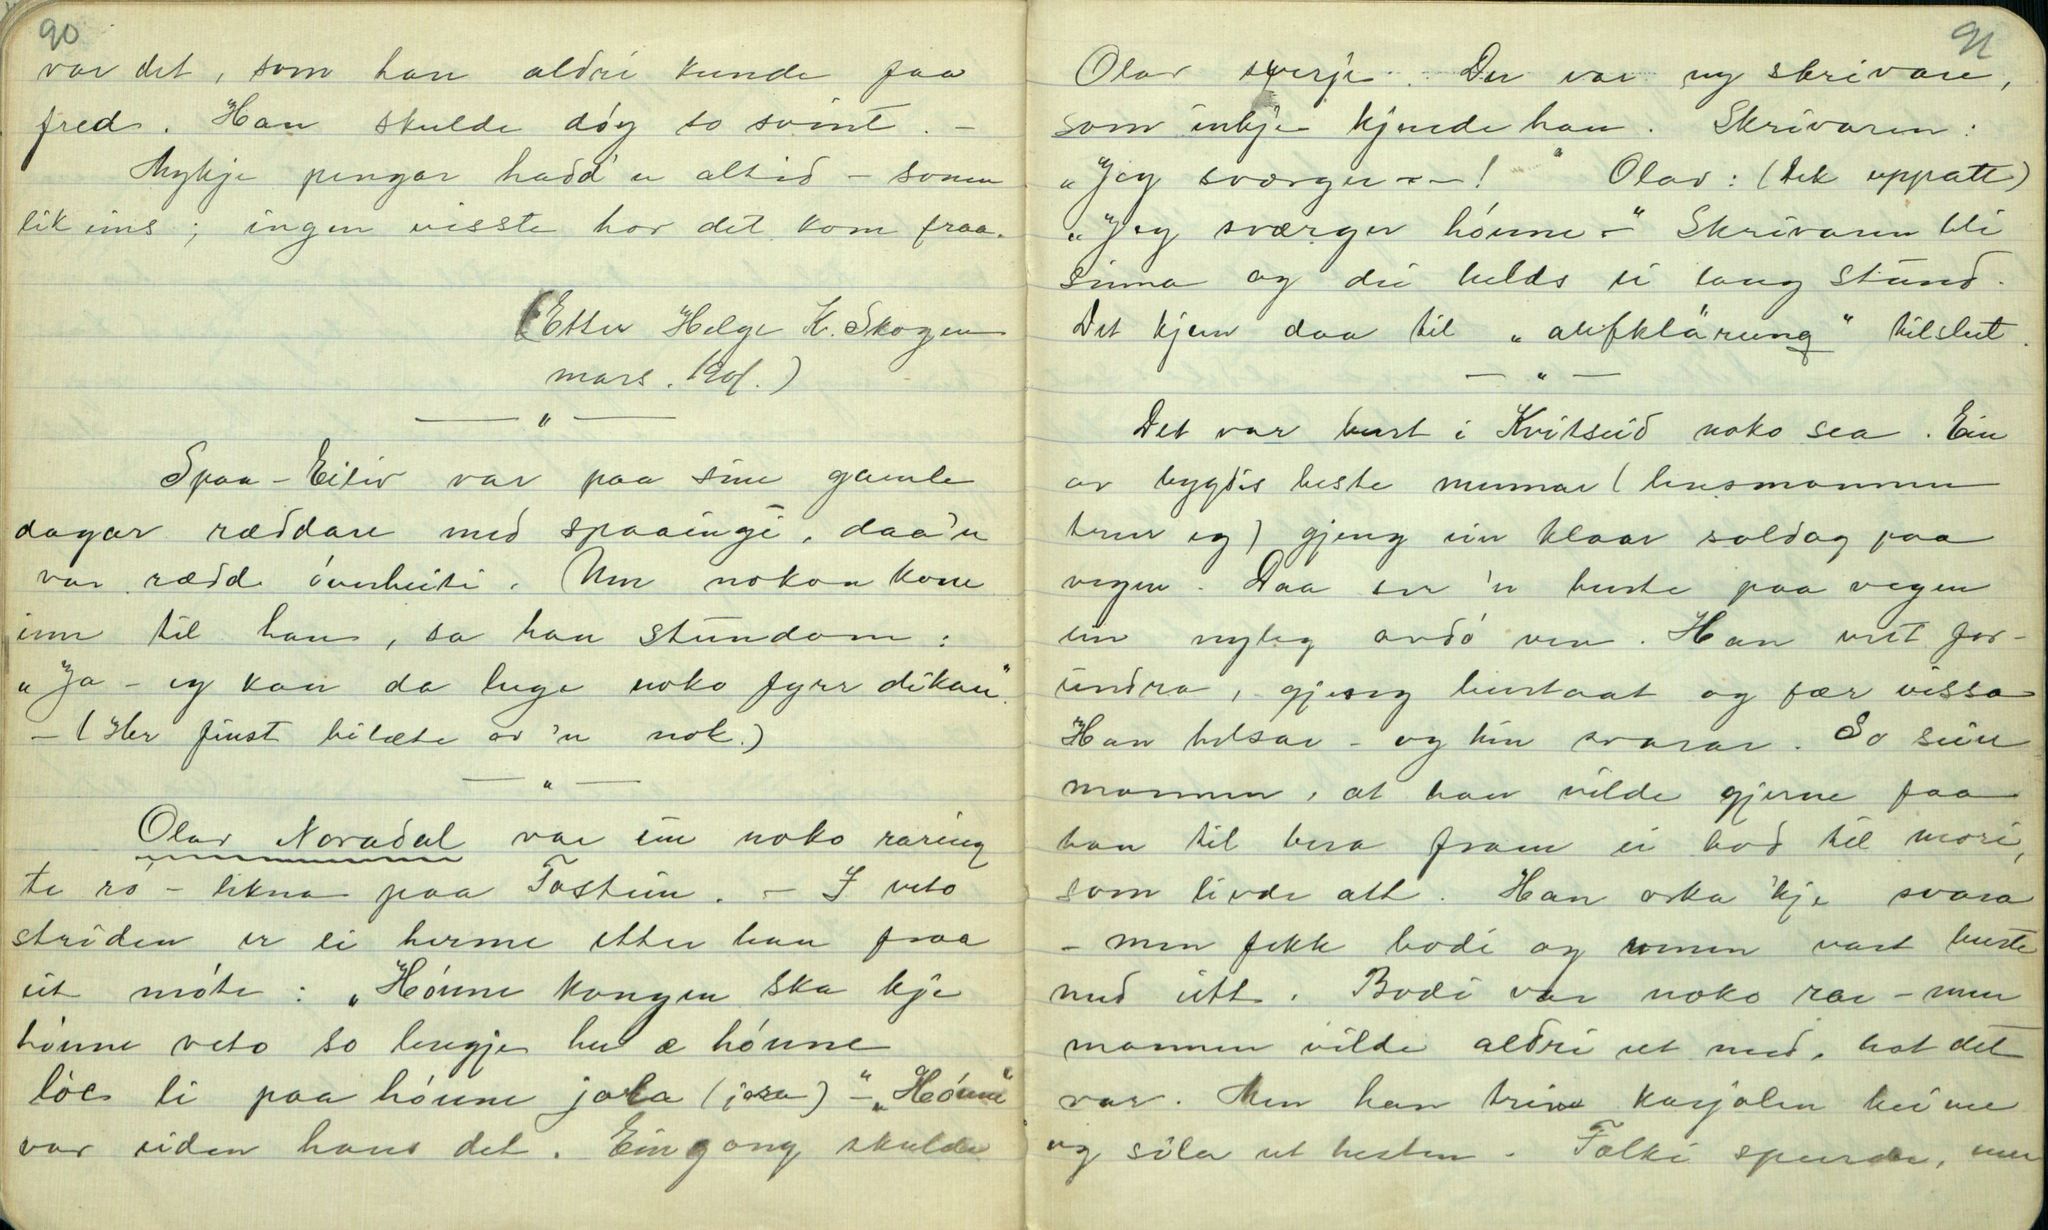 90
var det, som han aldri kunde faa
fred. Han skulde døy so svint. –
Mykje pengar hadd'n altid – sonen
likeins; ingen visste hor det kom fraa.
(Etter Helge K. Skogen
mars.)
— " —
Spaa-Eiliv var paa sine gamle
dagar ræddare med spaaingi, daa'n
var rædd óverheiti. Um nokon kom
inn til han, sa han stundom:
"Ja – eg kan da ljuge noko fyrr dikan".
– (Her finst bilæte av 'n nok.)
— " —
Olav Noradal var ein noko raring
te rø – likna paa Tostein. – I veto
striden er ei herme etter han fraa
eit møte: "Hónne kongen ska kje
hónne veto so lengje her æ hónne
løv li paa hónne jola (jora)" – "Hónne"
var siden hans det. Ein gong skulde
91
Olav sverje. Der var ny skrivare,
som inkje kjende han. Skrivaren:
"Jeg sværger – – !" Olav: (tek uppatt)
"Jeg sværger hónne –" Skrivaren bli
sinna og dei helds ei lang stund.
Det kjem daa til "aufklärung" tilslut.
— " —
Det var burt i Kvitseid noko sea. Ein
av bygdis beste mennar (lensmannen
trur eg) gjeng ein klaar soldag paa
vegen. Daa ser 'n burte paa vegen
ein nyleg avdó ven. Han vert for-
undra, gjeng burtaat og fær vissa
Han helsar – og hin svarar. So seie
mannen, at han vilde gjerne faa
han til bera fram ei bod til mori,
som livde att. Han orka 'kje svara
– men fekk bodi og venen vart burte
med eitt. Bodi var noko rar – men
mannen vilde aldri ut med, hot det
var. Men han treiv karjolen heime
og sela ut hesten. Folki spurde, men